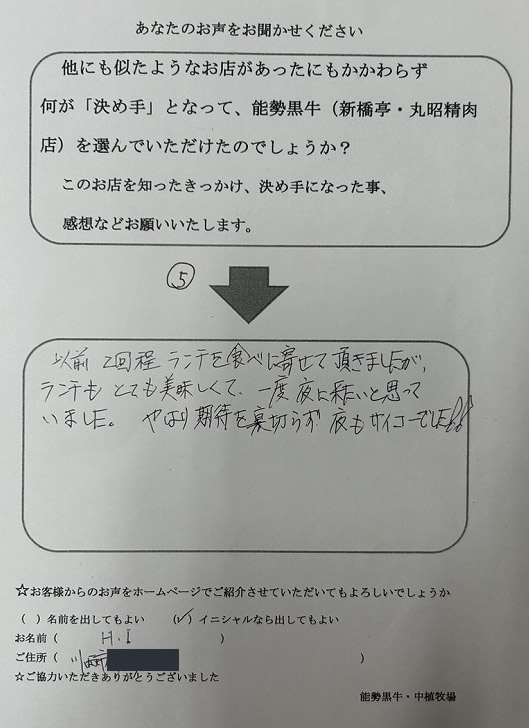 あなたのお声をお聞かせください
他にも似たようなお店があったにもかかわらず
何が「決め手」となって、能勢黒牛（新橋亭・丸昭精肉
店）を選んでいただけたのでしょうか？
このお店を知ったきっかけ、決め手になった事、
感想などお願いいたします。
⑤
以前 2回程 ランチを食べに寄せて頂きましたが、
ランチも とても美味しくて、一度夜に来たいと思って
いました。 やはり期待を裏切らず 夜もサイコーでした!!
☆お客様からのお声をホームページでご紹介させていただいてもよろしいでしょうか
（ ）名前を出してもよい （✓）イニシャルなら出してもよい
お名前（ H.I ）
ご住所（ 川西市 ）
☆ご協力いただきありがとうございました
能勢黒牛・中植牧場